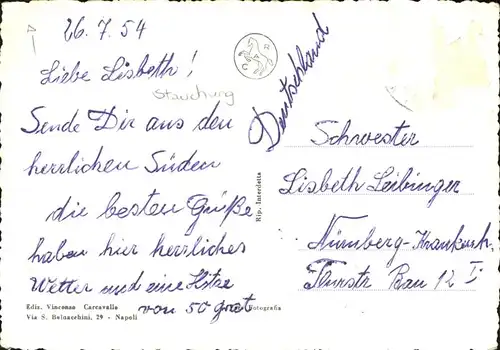 26.7.54
Liebe Lisbeth!
Stauchung
Sende Dir aus den
herrlichen Süden
die besten Grüße
haben hier herrliches
Wetter und eine Hitze
von 50 grat
Ediz. Vincenzo Carcavallo
Via S. Baldacchini, 29 - Napoli
Fotografia
Rip. Interdetta
C A R
Deutschland
Schwester
Lisbeth Leibinger
Nürnberg-Krankenh.
Flurstr Bau 12 I